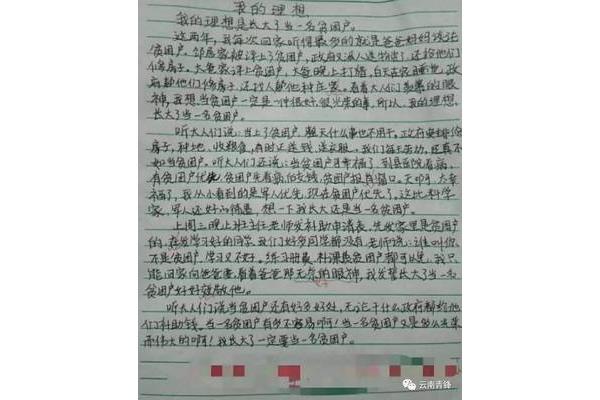 我的理想
我的理想是长大了当一名贫困户。
这两年,我每次回家听得最多的就是爸爸妈妈谈论
贫困户。邻居家被评上了贫困户,政府又派人送物资了,还给他们
修房子。大爸家评上贫困户,大爸晚上打牌,白天在家睡觉,政
府帮他们修房子,还找人帮他种庄家。看着大人们羡慕的眼
神,我想,当贫困户一定是一种很好,很光荣的事,所以,我的理想,
长大了当一名贫困户。
听大人们说:当上了贫困户,整天什么事也不用干。政府安排修
房子,种地、收粮食,有时还送钱、送衣服。我们每天劳动,还真不
如当贫困户。听大人们还说:当贫困户可幸福了,到县医院看病,
有贫困户优先,贫困户先看病后交钱,贫困户报有窗口。天呀,太幸
福了,我从小看到的是军人优先,现在贫困户优先了,这比科学
家、军人还好的待遇,想一下我长大还是当一名贫困户。
上周三晚上班主任老师发补助申请表,先发家里是贫困户
的,在发学习好的同学,我们好多同学都没有,老师说:谁叫你
不是贫困户,学习又不好。练习册费、补课费贫困户都可以免,我只
能回家向爸爸要,看着爸爸那无奈的眼神,我发誓长大了当一名
贫困户好好孝敬他。
听大人们说当贫困户还有好多好处,无论干什么政府都给他
们补助钱。当一名贫困户有多不容易啊!当一名贫困户又是多么光荣
而伟大的啊!我长大了一定要当一名贫困户。
云南青锋